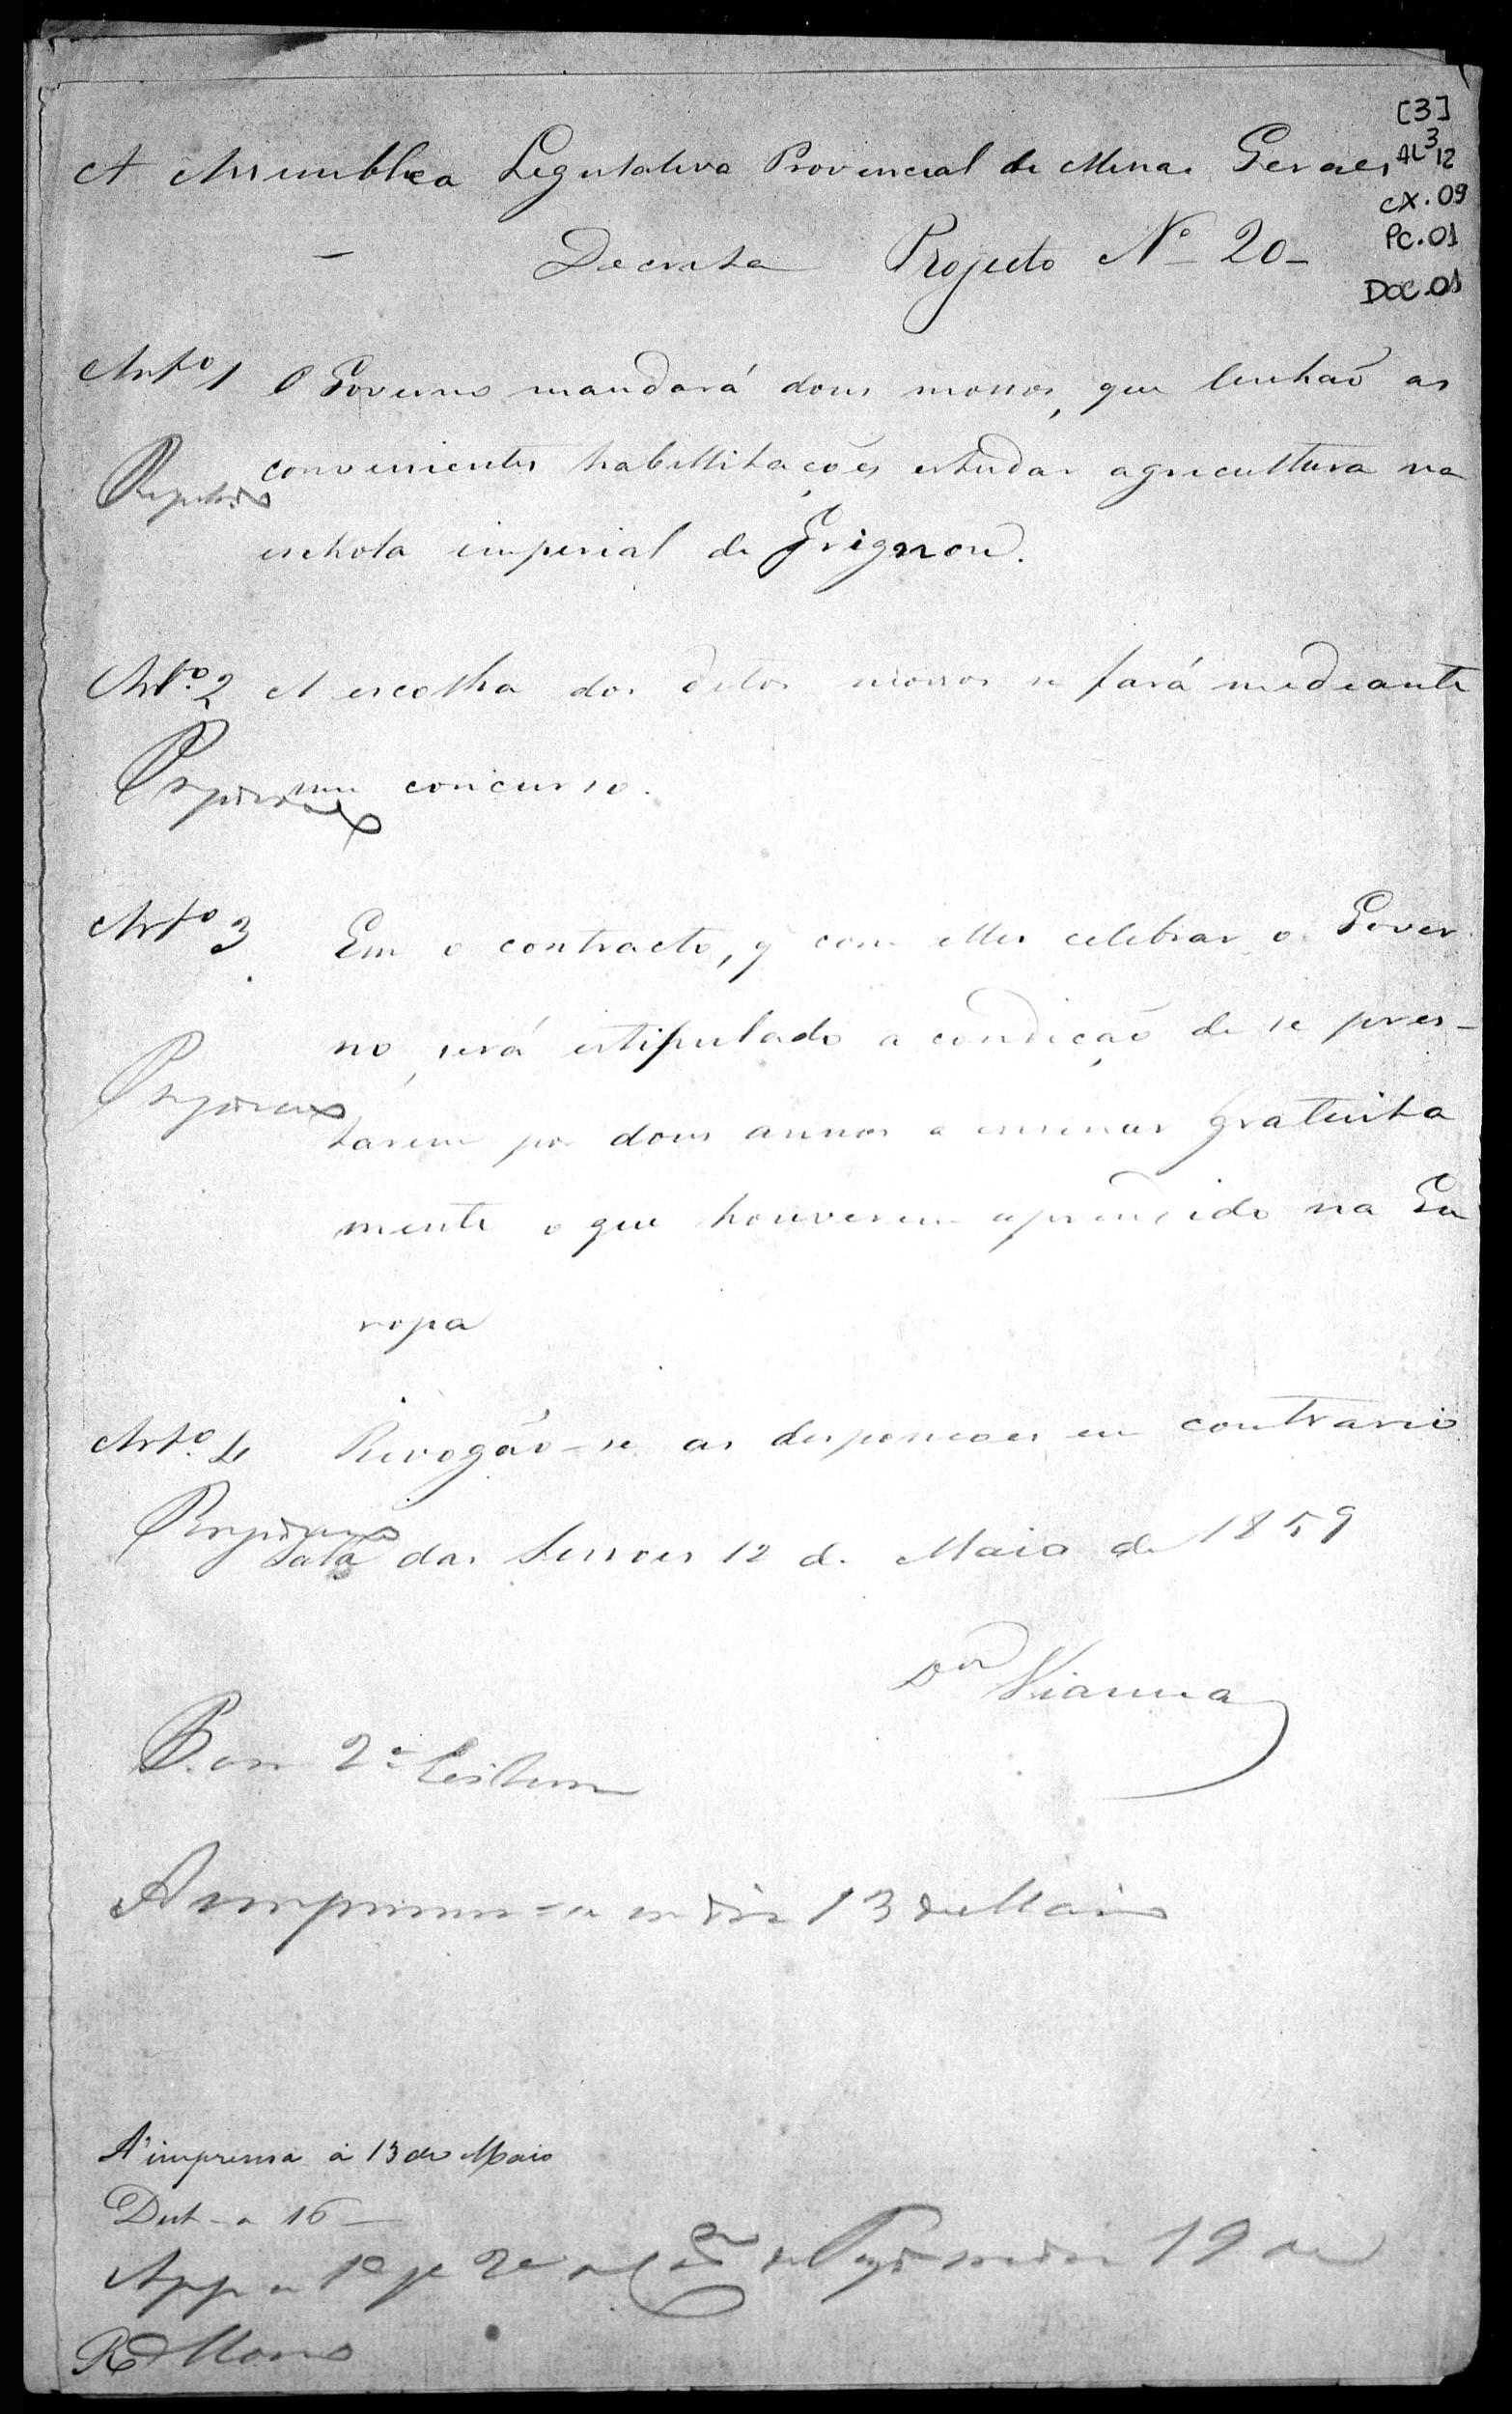 [3]
AL 3 12
CX. 09
PC. 01
DOC. 01
A Assemblea Legislativa Provincial de Minas Geraes
Decreta Projecto Nº 20
Artº 1 O Governo mandará dous mossos, que tenhaõ as
convenientes habillitações estudar agricultura na
eschola imperial de Grignon.
Artº 2 A escolha dos ditos mossos se fará mediante
um concurso.
Artº 3 Em o contracto, q com elles celebrar o Gover
no, será estipulado a condição de se pres-
tarem por dous annos a ensinar gratuita
mente o que houverem aprendido na Eu
ropa
Artº 4 Revogaõ-se as desposicoes em contrario
Sala das Sessoes 12 de Maio de 1859
Dr Vianna
2ª Leitura
13 de Maio
A'imprensa á 13 de Maio
16
19